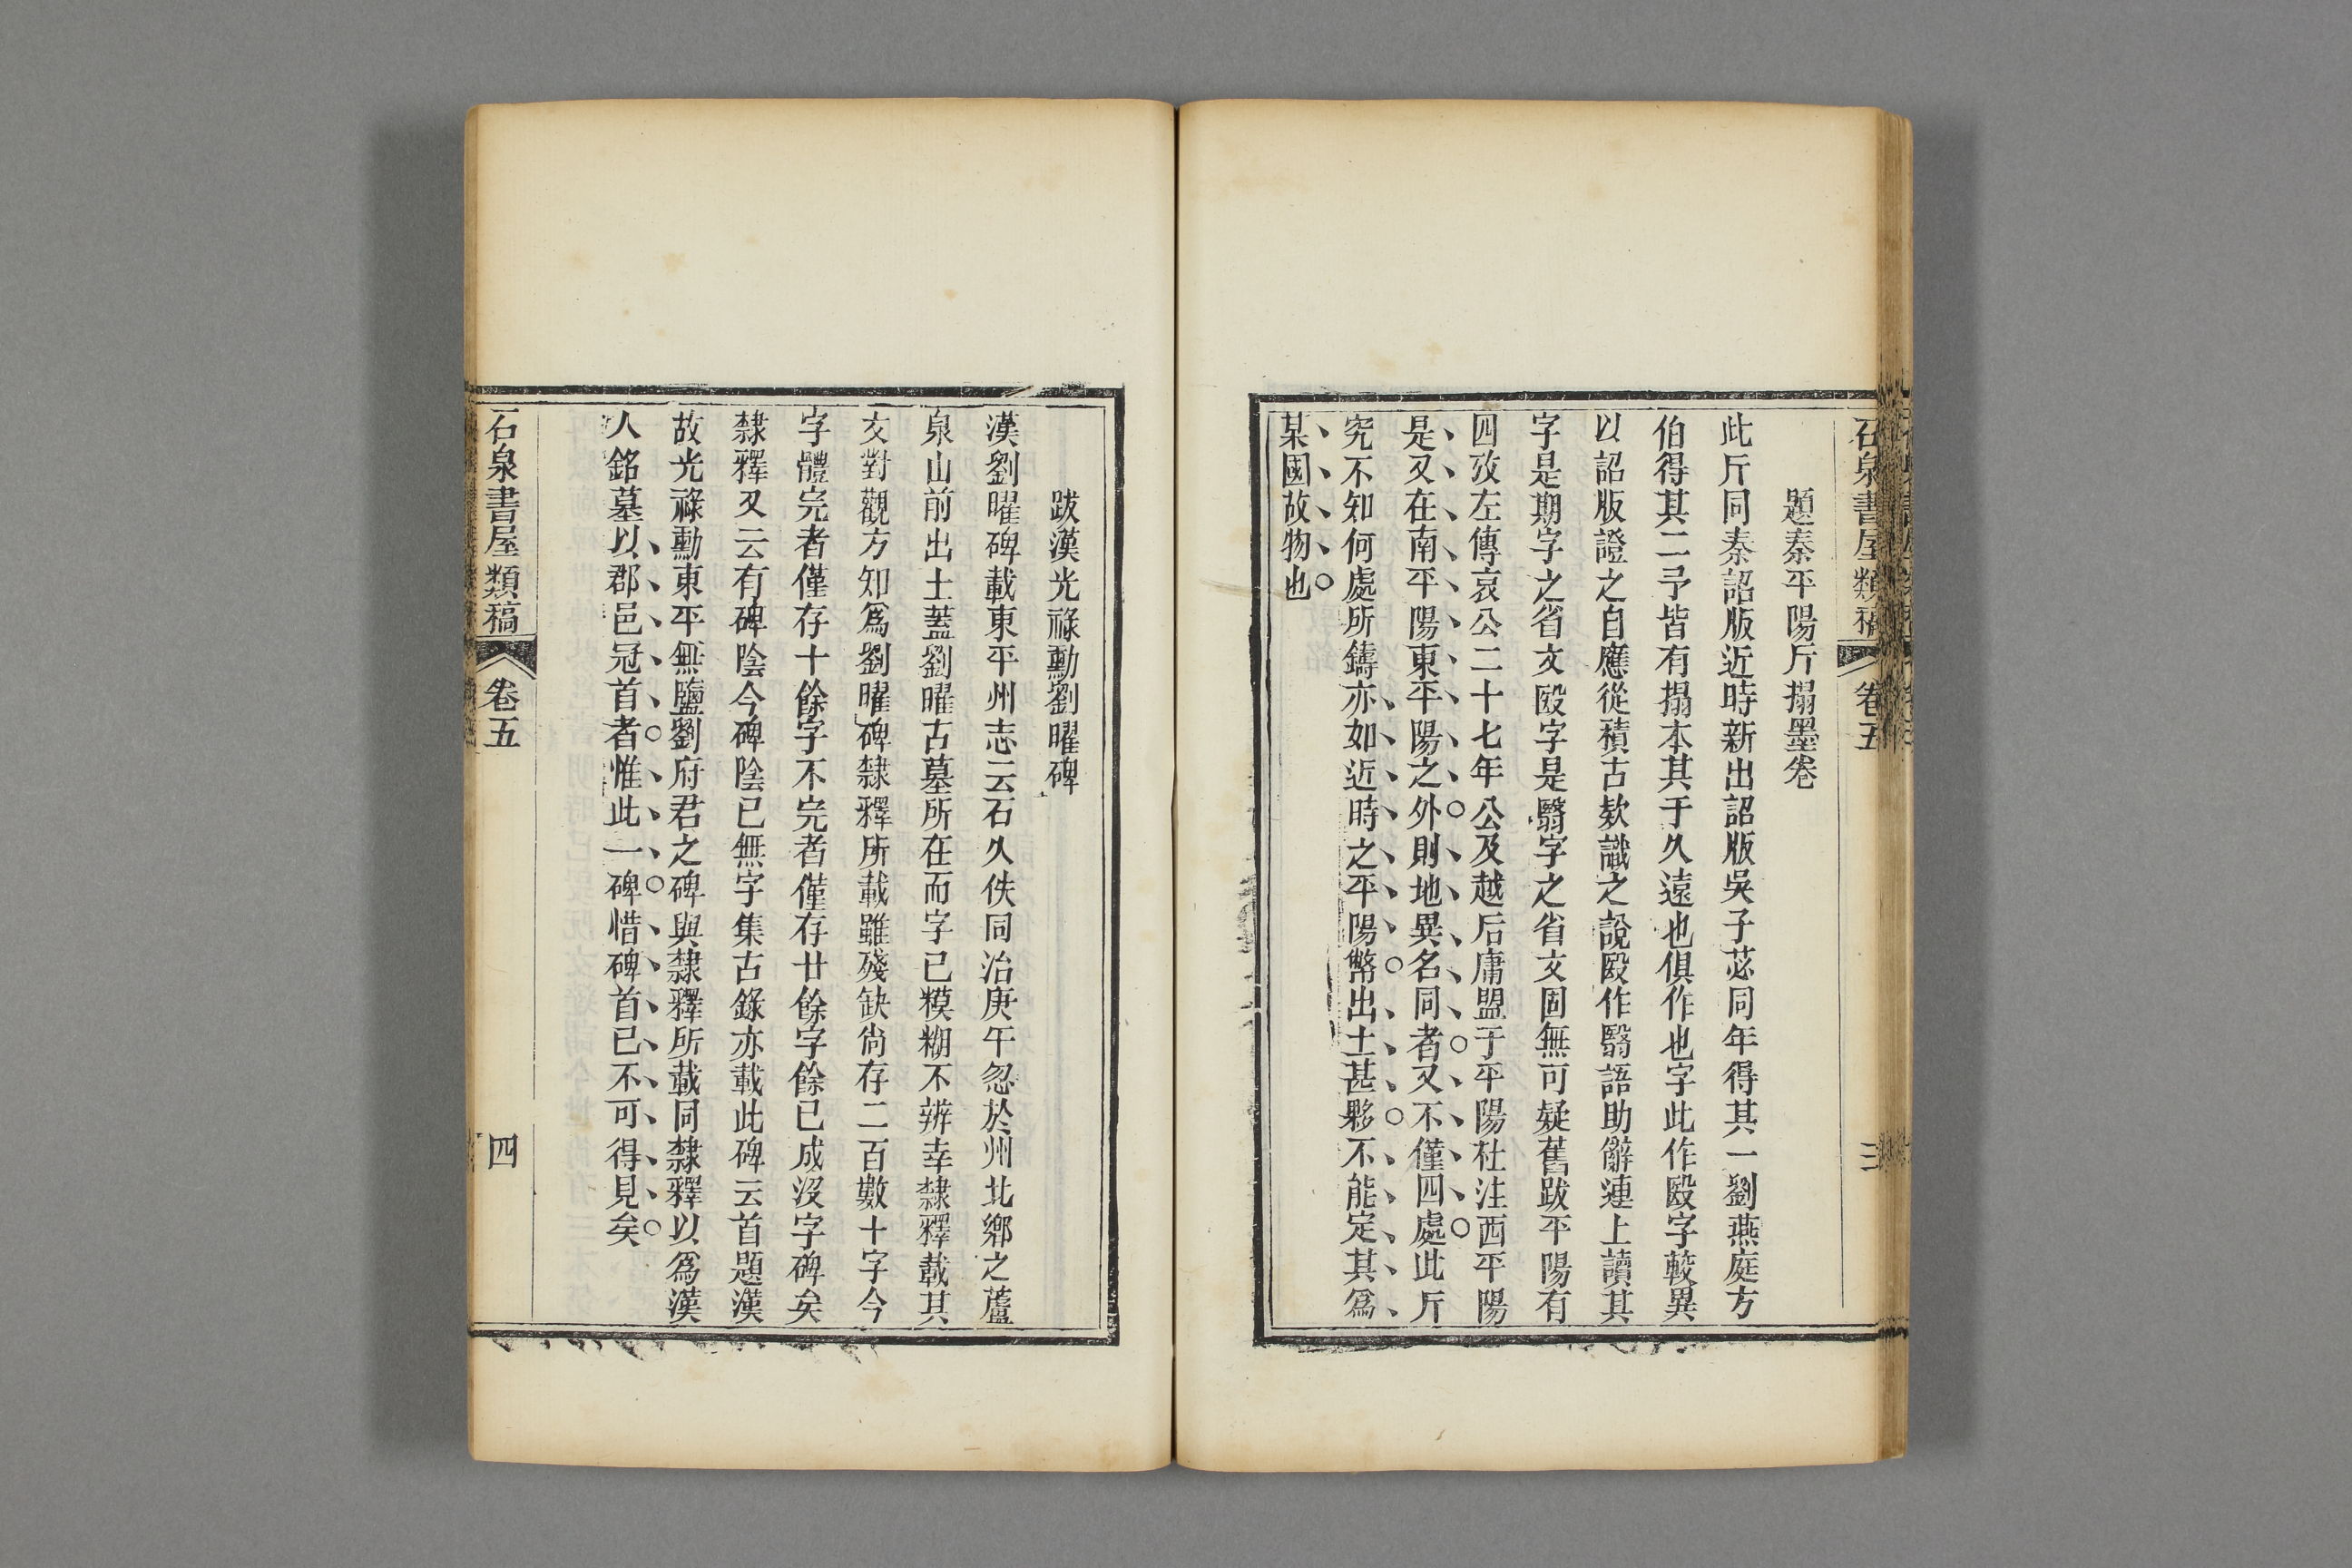 石泉書屋類稿 卷五 三
題秦平陽斤搨墨卷
此斤同秦詔版近時新出詔版吳子苾同年得其一劉燕庭方
伯得其二予皆有搨本其于久遠也也俱作也字此作殹字較異
以詔版證之自應從積古欵識之說殹作翳語助辭連上讀其
字是期字之省文殹字是翳字之省文固無可疑舊跋平陽有
四攷左傳哀公二十七年公及越后庸盟于平陽杜注西平陽
是又在南平陽東平陽之外則地異名同者又不僅四處此斤
究不知何處所鑄亦如近時之平陽幣出土甚夥不能定其爲
某國故物也
跋漢光祿勳劉曜碑
漢劉曜碑載東平州志云石久佚同治庚午忽於州北鄉之蘆
泉山前出土蓋劉曜古墓所在而字已糢糊不辨幸隸釋載其
文對觀方知爲劉曜碑隸釋所載雖殘缺尙存二百數十字今
字體完者僅存十餘字不完者僅存廿餘字餘已成沒字碑矣
隸釋又云有碑陰今碑陰已無字集古錄亦載此碑云首題漢
故光祿勳東平無鹽劉府君之碑與隸釋所載同隸釋以爲漢
人銘墓以郡邑冠首者惟此一碑惜碑首已不可得見矣
石泉書屋類稿 卷五 四